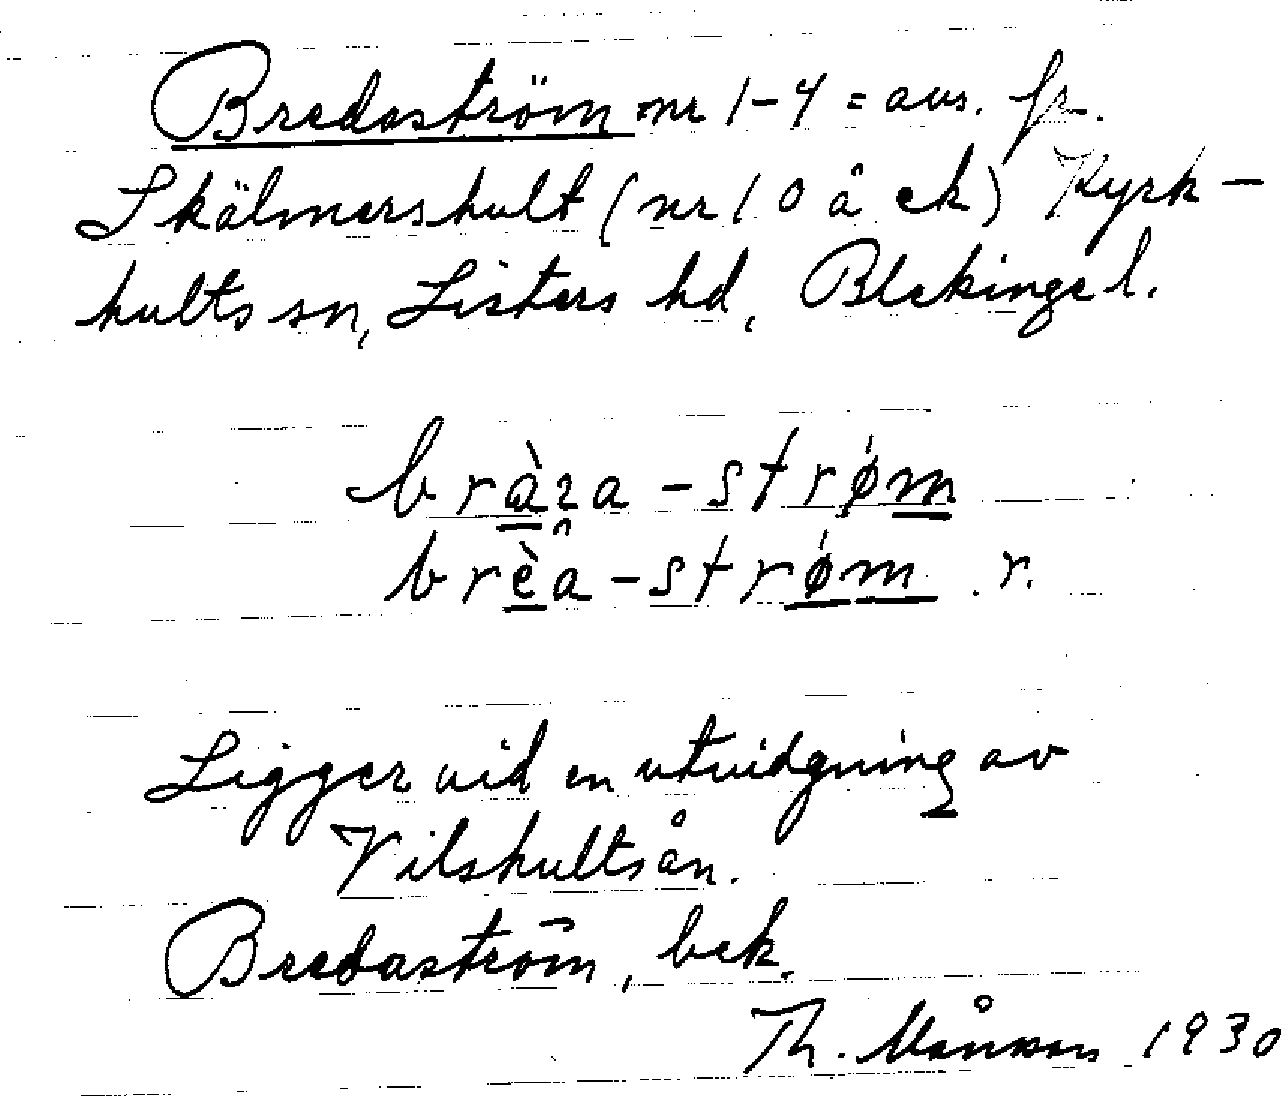 Bredaström nr 1-4 = avs. fr.
Skälmershult (nr 10 å ek) Kyrk-
hults sn, Listers hd, Blekinge l.
bràza-strøm
brèa-strǿm r.
Ligger vid en utvidgning av
Vilshultsån.
Bredaström, bek.
Th. Månsson 1930